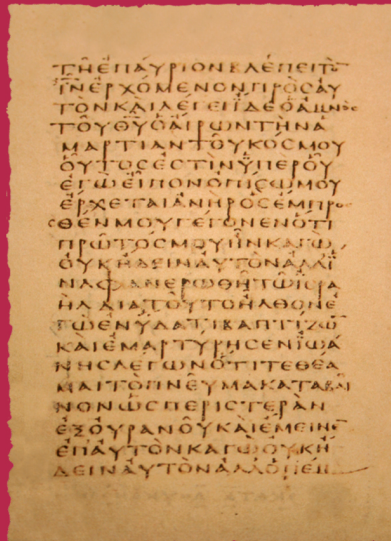 ΤΗ ΕΠΑΥΡΙΟΝ ΒΛΕΠΕΙ ΤΟ
ΙΝ ΕΡΧΟΜΕΝΟΝ ΠΡΟΣ ΑΥ
ΤΟΝ ΚΑΙ ΛΕΓΕΙ ΪΔΕ Ο ΑΜΝΟΣ
ΤΟΥ ΘΥ Ο ΑΙΡΩΝ ΤΗΝ Α
ΜΑΡΤΙΑΝ ΤΟΥ ΚΟΣΜΟΥ
ΟΥΤΟΣ ΕΣΤΙΝ ΫΠΕΡ ΟΥ
ΕΓΩ ΕΙΠΟΝ ΟΠΙΣΩ ΜΟΥ
ΕΡΧΕΤΑΙ ΑΝΗΡ ΟΣ ΕΜΠΡΟ
ΣΘΕΝ ΜΟΥ ΓΕΓΟΝΕΝ ΟΤΙ
ΠΡΩΤΟΣ ΜΟΥ ΗΝ ΚΑΓΩ
ΟΥΚ ΗΔΕΙΝ ΑΥΤΟΝ ΑΛΛ Ϊ
ΝΑ ΦΑΝΕΡΩΘΗ ΤΩ ΙΣΡΑ
ΗΛ ΔΙΑ ΤΟΥΤΟ ΗΛΘΟΝ Ε
ΓΩ ΕΝ ΫΔΑΤΙ ΒΑΠΤΙΖΩ
ΚΑΙ ΕΜΑΡΤΥΡΗΣΕΝ ΙΩΑ
ΝΗΣ ΛΕΓΩΝ ΟΤΙ ΤΕΘΕΑ
ΜΑΙ ΤΟ ΠΝΕΥΜΑ ΚΑΤΑΒΑΙ
ΝΟΝ ΩΣ ΠΕΡΙΣΤΕΡΑΝ
ΕΞ ΟΥΡΑΝΟΥ ΚΑΙ ΕΜΕΙΝΕ
ΕΠ ΑΥΤΟΝ ΚΑΓΩ ΟΥΚ Η
ΔΕΙΝ ΑΥΤΟΝ ΑΛΛ Ο ΠΕΜ